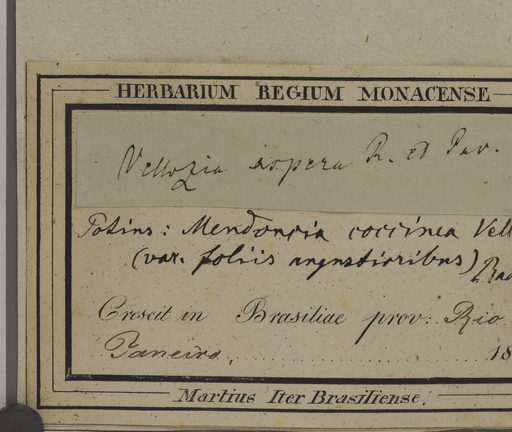 HERBARIUM REGIUM MONACENSE
Vellozia aspera R. et Pav.
Potius: Mendoncia coccinea Vell
(var. foliis angustioribus) Rad
Crescit in Brasiliae prov: Rio
Janeiro. 18
Martius Iter Brasiliense.